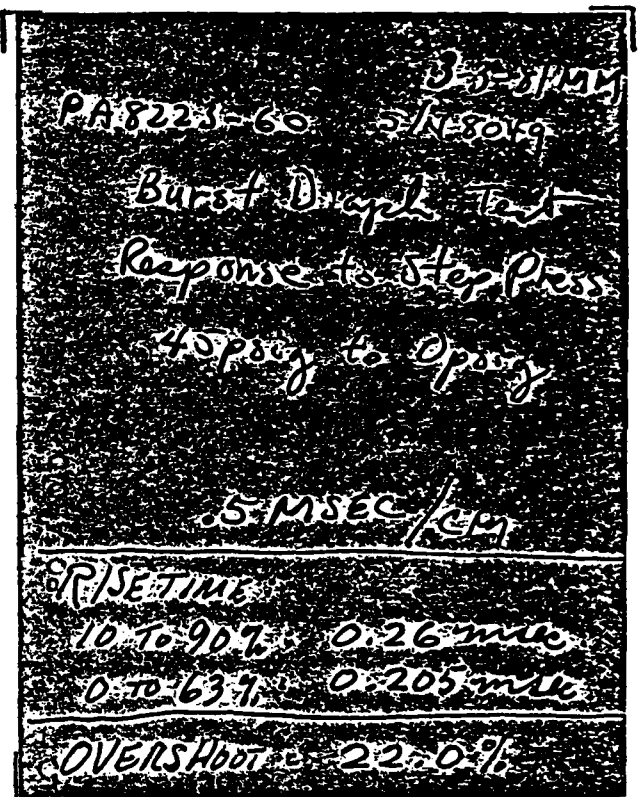 3-5-81 MM
PA8223-60 S/N-8049
Burst Diaph Test
Response to Step Press
45psig to 0psig
.5 MSEC/CM
RISETIME
10 TO 90% 0.26 msec
0 TO 63% 0.205 msec
OVERSHOOT = 22.0%